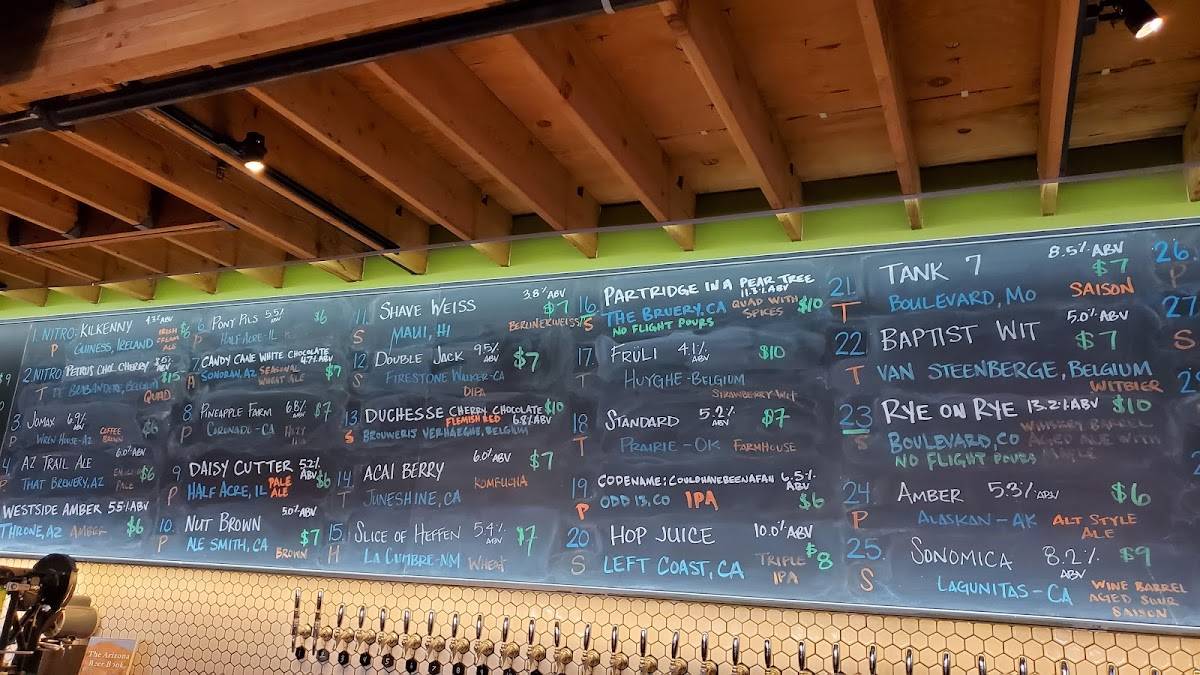 1. NITRO: KILKENNY 4.3% ABV
P GUINESS, IRELAND IRISH CREAM ALE
2. NITRO PETRUS CHOC CHERRY 8.5% ABV
T DE BRABANDERE, BELGIUM $15 QUAD
3. JOMAX 6.9% ABV
P WREN HOUSE-AZ COFFEE BROWN $6
4 AZ TRAIL ALE 6.0% ABV
P THAT BREWERY, AZ PALE $6
WESTSIDE AMBER 5.5% ABV
THRONE, AZ AMBER $6
6 PONY PILS 5.5% ABV $6
P HALF ACRE-IL
7 CANDY CANE WHITE CHOCOLATE 4.7% ABV
A SONORAN, AZ SEASONAL WHEAT ALE $7
8 PINEAPPLE FARM 6.8% ABV $7
P CORONADO-CA HAZY
9 DAISY CUTTER 5.2% ABV $6
P HALF ACRE, IL PALE ALE
10. NUT BROWN 5.0% ABV
P ALE SMITH, CA BROWN $7
11. SHAVE WEISS 3.8% ABV $7
S MAUI, HI BERLINERWEISS
12 DOUBLE JACK 9.5% ABV $7
S FIRESTONE WALKER-CA DIPA
13. DUCHESSE CHERRY CHOCOLATE $10
S FLEMISH RED 6.8% ABV
BROUWERIJ VERHAEGHE, BELGIUM
14. ACAI BERRY 6.0% ABV $7
T JUNESHINE, CA KOMBUCHA
15. SLICE OF HEFFEN 5.4% ABV $7
H LA CUMBRE-NM WHEAT
16. PARTRIDGE IN A PEAR TREE
11.3% ABV
S THE BRUERY, CA QUAD WITH SPICES $10
NO FLIGHT POURS
17 FRÜLI 4.1% ABV $10
T HUYGHE-BELGIUM
STRAWBERRY WIT
18 STANDARD 5.2% ABV $7
T PRAIRIE-OK FARMHOUSE
19. CODENAME: COULDHAVEBEENAFAN 6.5% ABV
P ODD 13, CO IPA $6
20 HOP JUICE 10.0% ABV
S LEFT COAST, CA TRIPLE IPA $8
21. TANK 7 8.5% ABV $7
T BOULEVARD, MO SAISON
22 BAPTIST WIT 5.0% ABV $7
T VAN STEENBERGE, BELGIUM
WITBIER
23 RYE ON RYE 13.2% ABV $10
S BOULEVARD, CO WHISKEY BARREL AGED ALE WITH
NO FLIGHT POURS
24. AMBER 5.3% ABV $6
P ALASKAN-AK ALT STYLE ALE
25. SONOMICA 8.2% ABV $9
S LAGUNITAS-CA WINE BARREL AGED SOUR SAISON
26.
P
27
S
The Arizona Beer Book